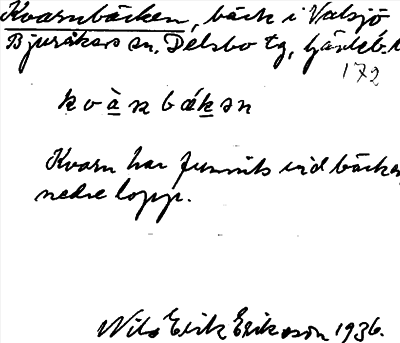 Kvarnbäcken, bäck i Valsjö
Bjuråkers sn, Delsbo tg, Gävleb. l
172
kvàn báksn
Kvarn har funnits vid bäcken
nedre lopp.
Nils Erik Eriksson 1936.